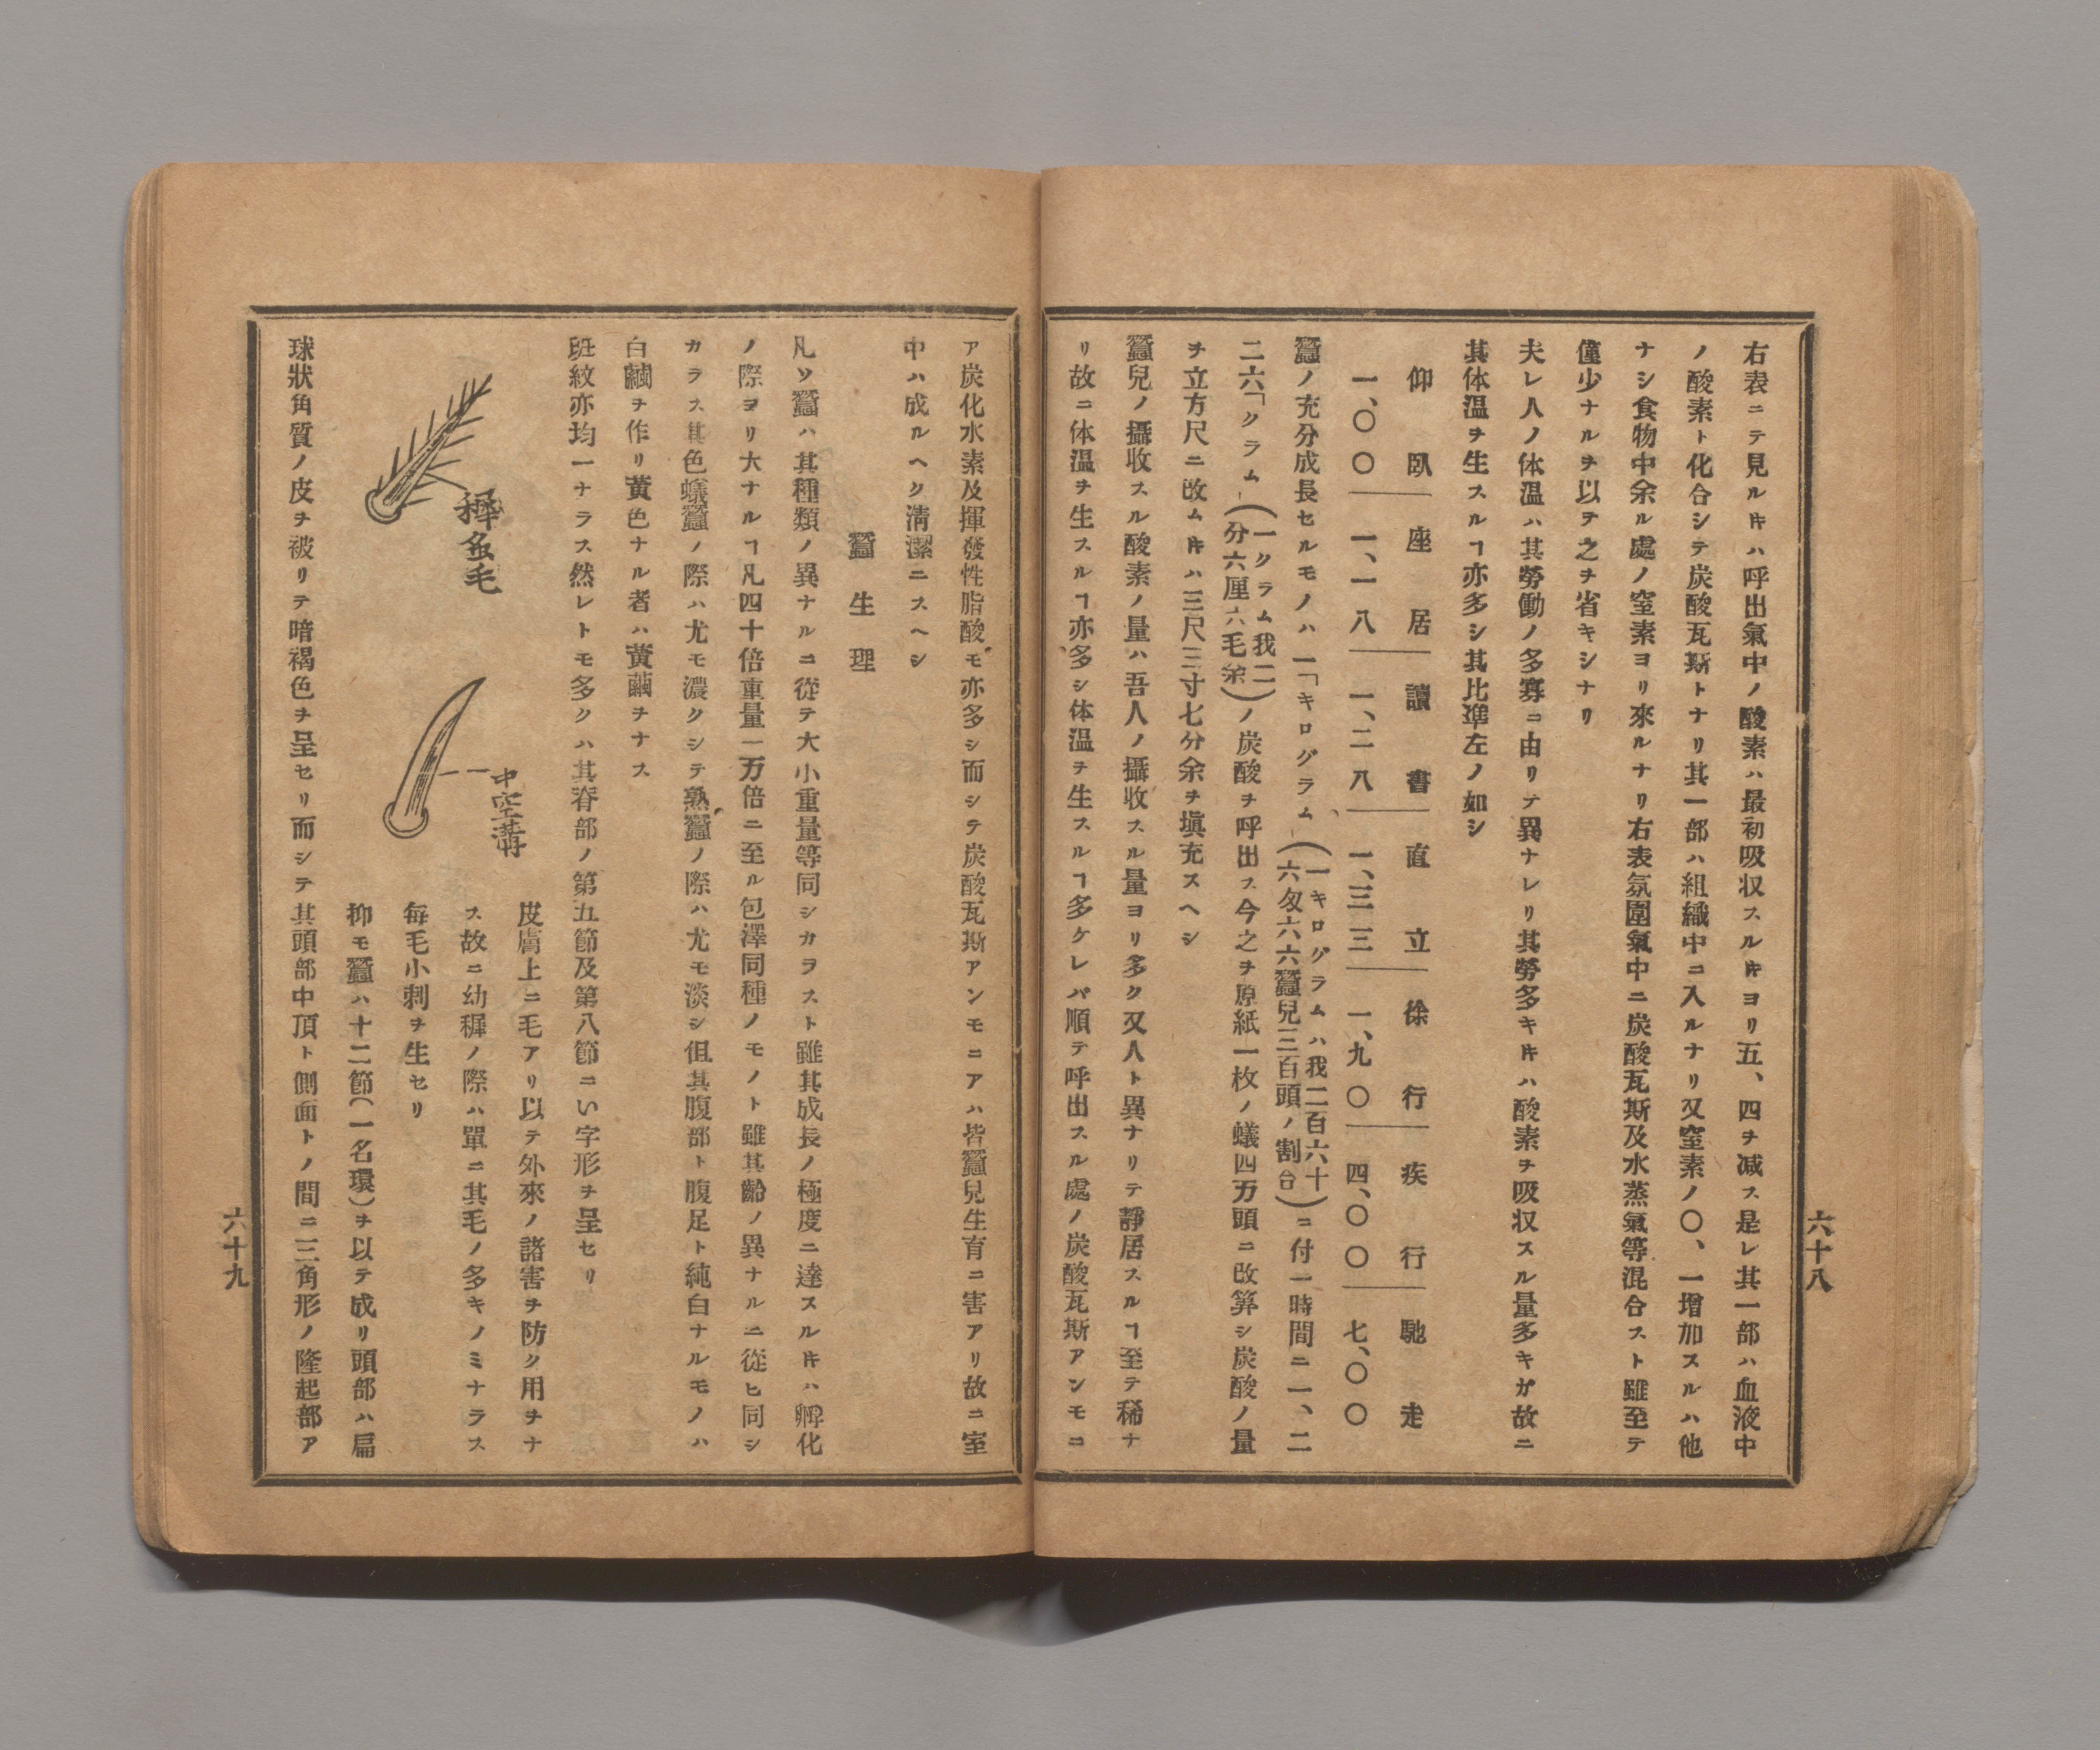 六十八
右表ニテ見ル𪜈ハ呼出氣中ノ酸素ハ最初吸収スル𪜈ヨリ五、四ヲ减ス是レ其一部ハ血液中
ノ酸素ト化合シテ炭酸瓦斯トナリ其一部ハ組織中ニ入ルナリ又窒素ノ〇、一增加スルハ他
ナシ食物中余ル處ノ窒素ヨリ來ルナリ右表氛圍氣中ニ炭酸瓦斯及水蒸氣等混合スト雖至テ
僅少ナルヲ以テ之ヲ省キシナリ
夫レ人ノ体温ハ其勞働ノ多寡ニ由リテ異ナレリ其勞多キ𪜈ハ酸素ヲ吸収スル量多キガ故ニ
其体温ヲ生スルヿ亦多シ其比準左ノ如シ
仰臥 座居 讀書 直立 徐行 疾行 馳走
一、〇〇 一、一八 一、二八 一、三三 一、九〇 四、〇〇 七、〇〇
蠶ノ充分成長セルモノハ一「キログラム」(一キログラムハ我二百六十六匁六六蠶兒三百頭ノ割合)ニ付一時間ニ一、二
二六「クラム」(一クラム我二分六厘六毛余)ノ炭酸ヲ呼出ス今之ヲ原紙一枚ノ蟻四万頭ニ改算シ炭酸ノ量
ヲ立方尺ニ改ム𪜈ハ三尺三寸七分余ヲ塡充スヘシ
蠶兒ノ攝收スル酸素ノ量ハ吾人ノ攝收スル量ヨリ多ク又人ト異ナリテ靜居スルヿ至テ稀ナ
リ故ニ体温ヲ生スルヿ亦多シ体温ヲ生スルヿ多ケレバ順テ呼出スル處ノ炭酸瓦斯アンモニ
ア炭化水素及揮發性脂酸モ亦多シ而シテ炭酸瓦斯アンモニアハ皆蠶兒生育ニ害アリ故ニ室
中ハ成ルヘク淸潔ニスヘシ
蠶生理
凡ソ蠶ハ其種類ノ異ナルニ從テ大小重量等同シカラスト雖其成長ノ極度ニ達スル𪜈ハ孵化
ノ際ヨリ大ナルヿ凡四十倍重量一万倍ニ至ル包澤同種ノモノト雖其齡ノ異ナルニ從ヒ同シ
カラス其色蟻蠶ノ際ハ尤モ濃クシテ熟蠶ノ際ハ尤モ淡シ但其腹部ト腹足ト純白ナルモノハ
白繭ヲ作リ黄色ナル者ハ黄繭ヲナス
班紋亦均一ナラス然レトモ多クハ其脊部ノ第五節及第八節ニい字形ヲ呈セリ
皮膚上ニ毛アリ以テ外來ノ諸害ヲ防ク用ヲナ
ス故ニ幼穉ノ際ハ單ニ其毛ノ多キノミナラス
毎毛小刺ヲ生セリ
穉蚕毛
中空溝
抑モ蠶ハ十二節(一名環)ヲ以テ成リ頭部ハ扁
球狀角質ノ皮ヲ被リテ暗褐色ヲ呈セリ而シテ其頭部中頂ト側面トノ間ニ三角形ノ隆起部ア
六十九